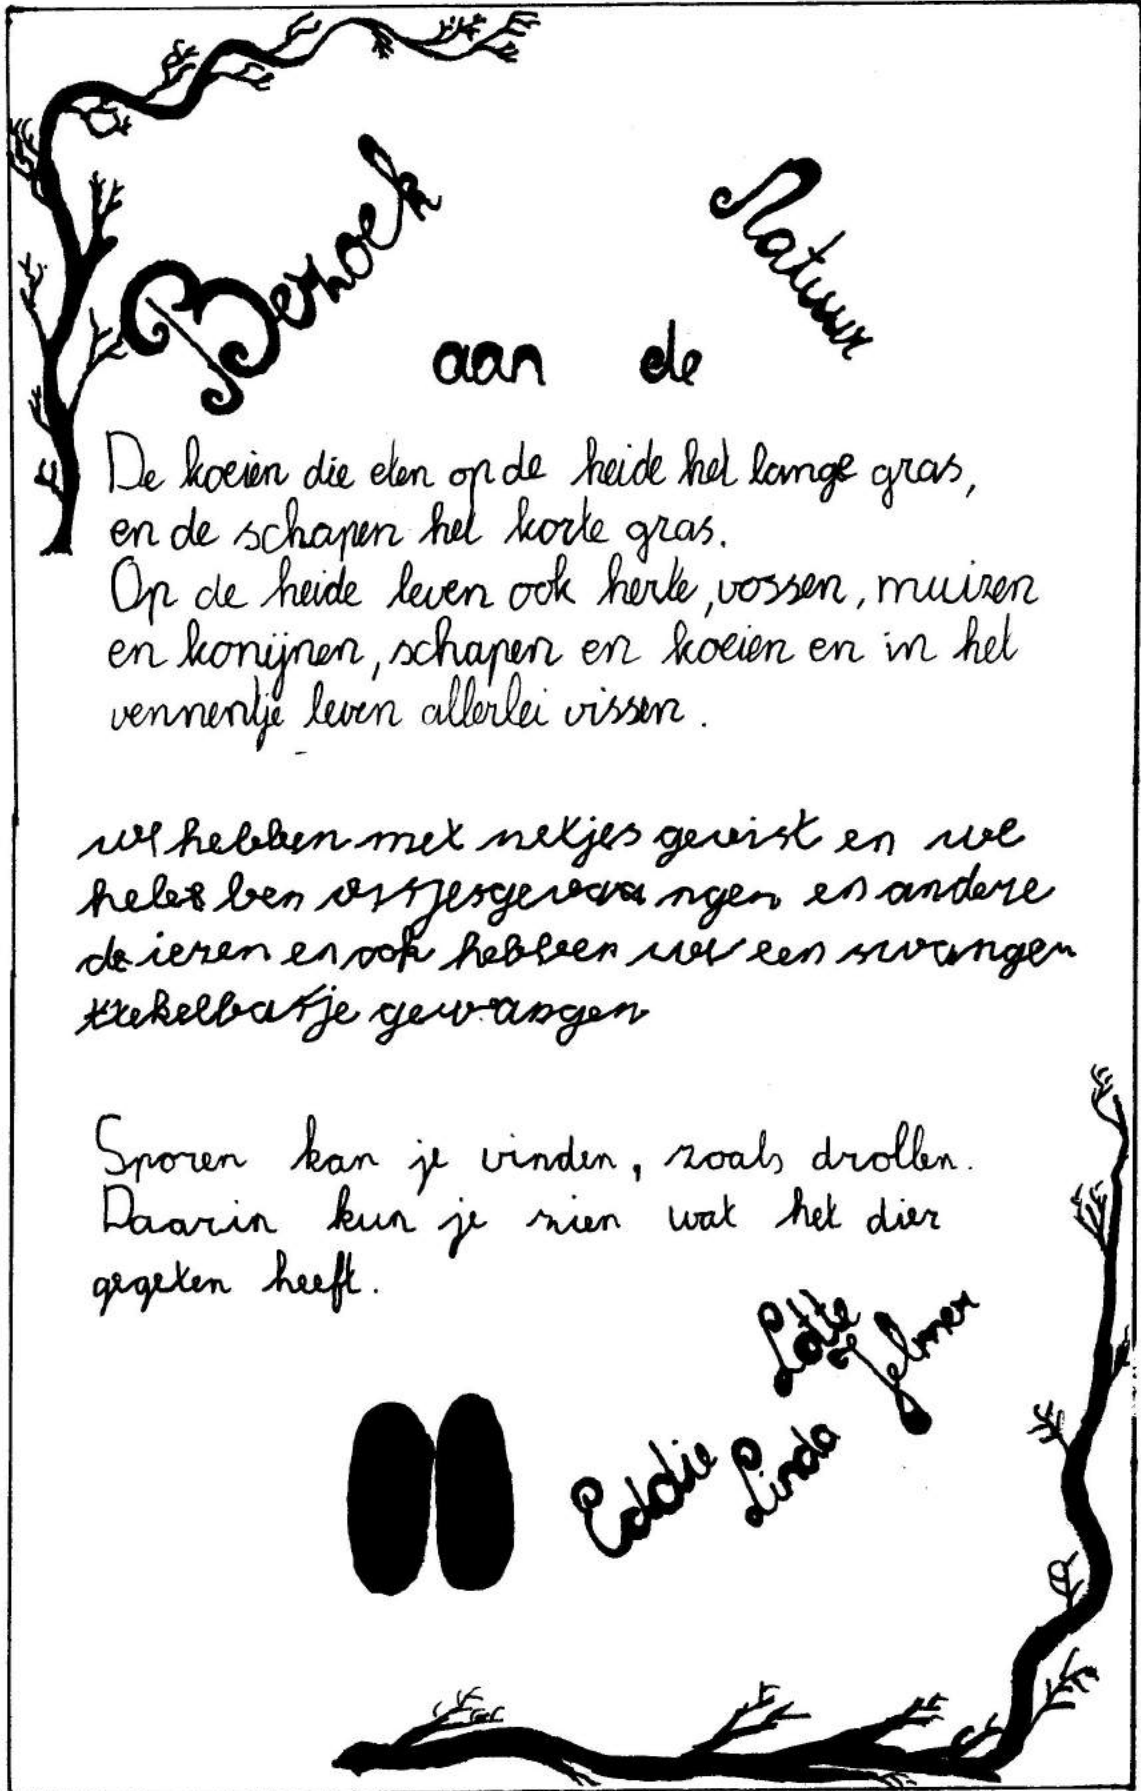 Bezoek
aan de
Natuur
De koeien die eten op de heide het lange gras,
en de schapen het korte gras.
Op de heide leven ook herte, vossen, muizen
en konijnen, schapen en koeien en in het
vennentje leven allerlei vissen.
we hebben met netjes gevist en we
hebben visjes gevangen en andere
dieren en ook hebben we een swangen
stekelbasje gevangen
Sporen kan je vinden, zoals drollen.
Daarin kun je zien wat het dier
gegeten heeft.
Lotte
Jelmer
Eddie
Linda